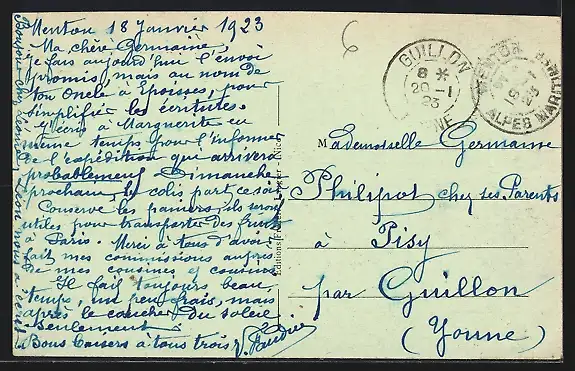 Menton 18 Janvier 1923
Ma chère Germaine,
je fais aujourd'hui l'envoi
promis, mais au nom de
ton Oncle à Epoisses, pour
simplifier les écritures.
J'écris à Marguerite en
même temps pour l'informer
de l'expédition qui arrivera
probablement Dimanche
prochain, le colis part ce soir.
Conserve les paniers, ils seront
utiles pour transporter des fruits
à Paris. Merci à tous d'avoir
fait mes commissions auprès
de mes cousines et cousins
Il fait toujours beau
temps, un peu frais, mais
après le coucher du soleil
seulement.
Bons baisers à tous trois
GUILLON
8 *
20 -1
23
YONNE
MENTON
ALPES MARITIMES
Mademoiselle Germaine
Philipot chez ses Parents
à Pisy
par Guillon
(Yonne)